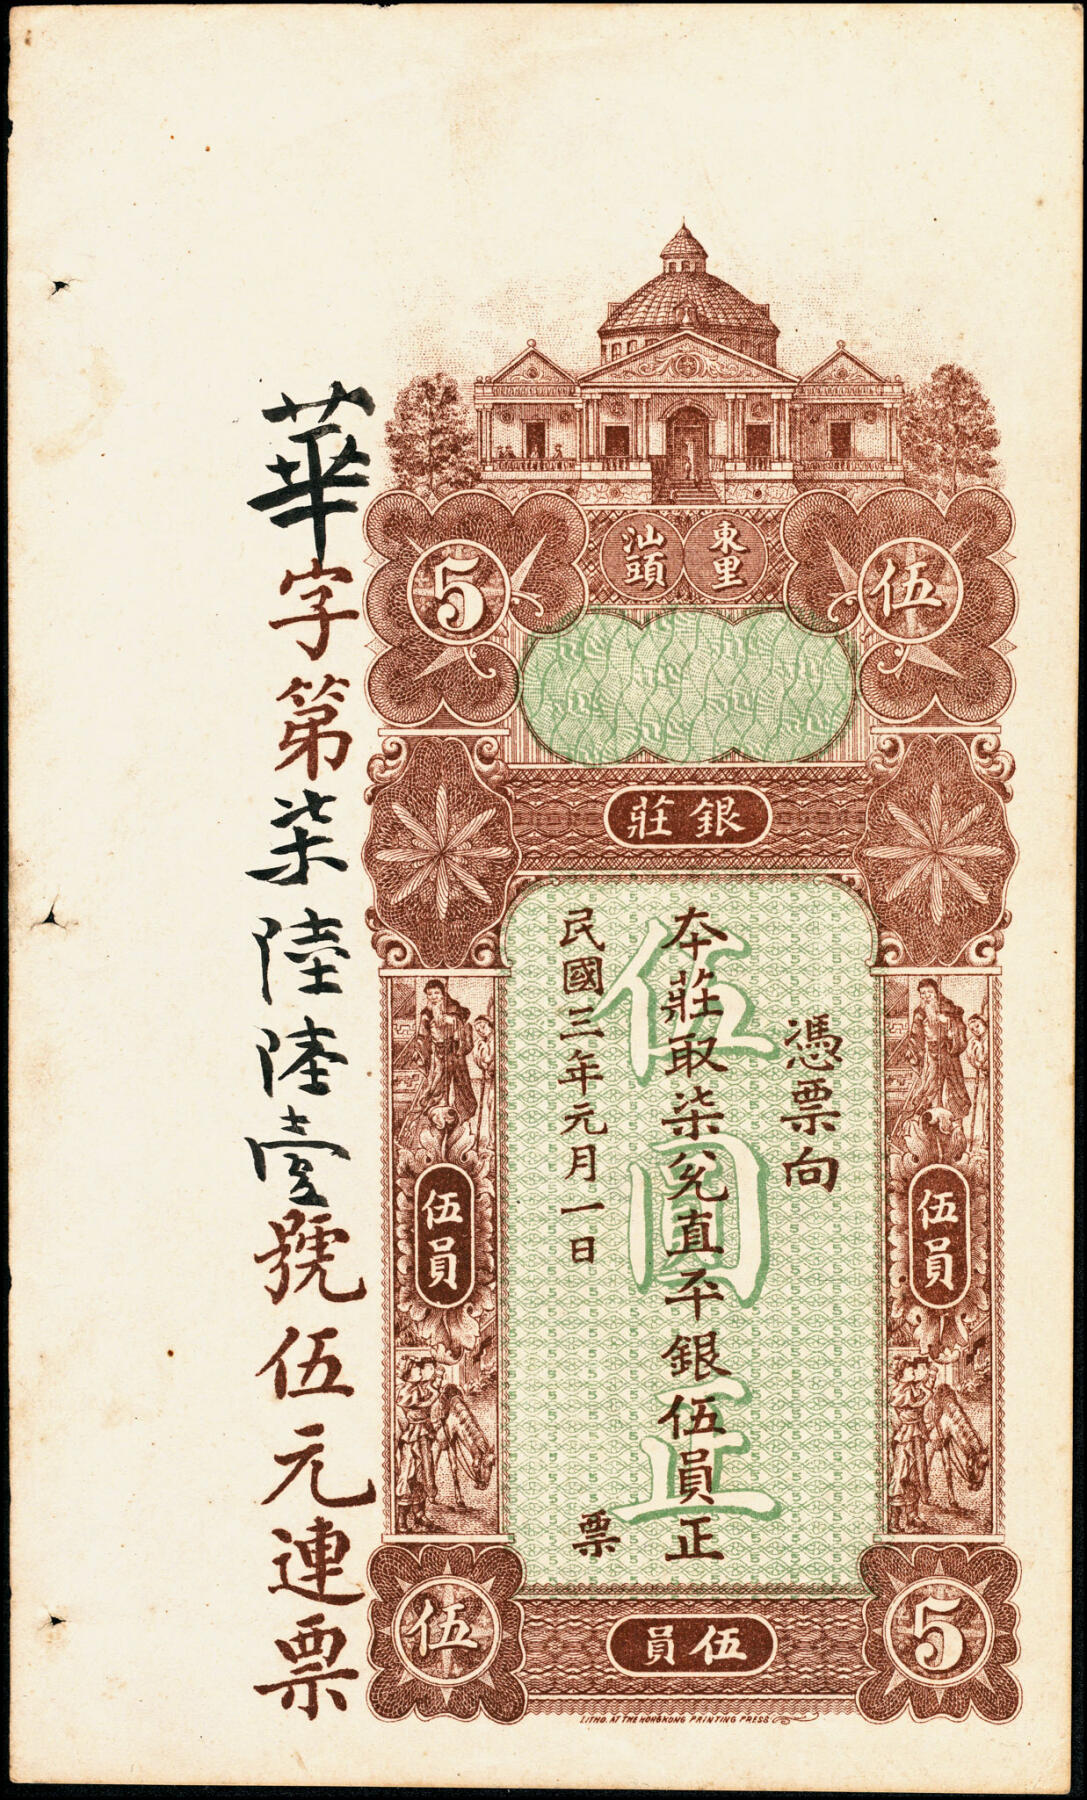 東里
汕頭
5
伍
銀莊
憑票向
本莊取柒兌直平銀伍員正
民國三年元月一日
票
伍圓正
伍員
伍員
伍
伍員
5
LITHO. AT THE HONGKONG PRINTING PRESS
華字第柒陸陸壹號伍元連票